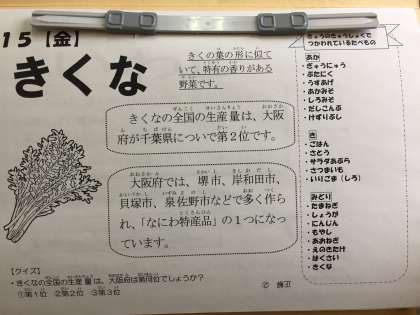 15【金】
きくな
きくの葉の形に似て
いて、特有の香りがある
野菜です。
きくなの全国の生産量は、大阪
府が千葉県についで第2位です。
大阪府では、堺市、岸和田市、
貝塚市、泉佐野市などで多く作ら
れ、「なにわ特産品」の1つになっ
ています。
【クイズ】
・きくなの生産量は、大阪府は第何位でしょうか？
①第1位 ②第2位 ③第3位
きょうのきゅうしょくで
つかわれているたべもの
あか
・ぎゅうにゅう
・ぶたにく
・うすあげ
・あかみそ
・しろみそ
・だしこんぶ
・けずりぶし
き
・ごはん
・さとう
・サラダあぶら
・さつまいも
・いりごま（しろ）
みどり
・たまねぎ
・しょうが
・にんじん
・もやし
・あおねぎ
・えのきたけ
・はくさい
・きくな